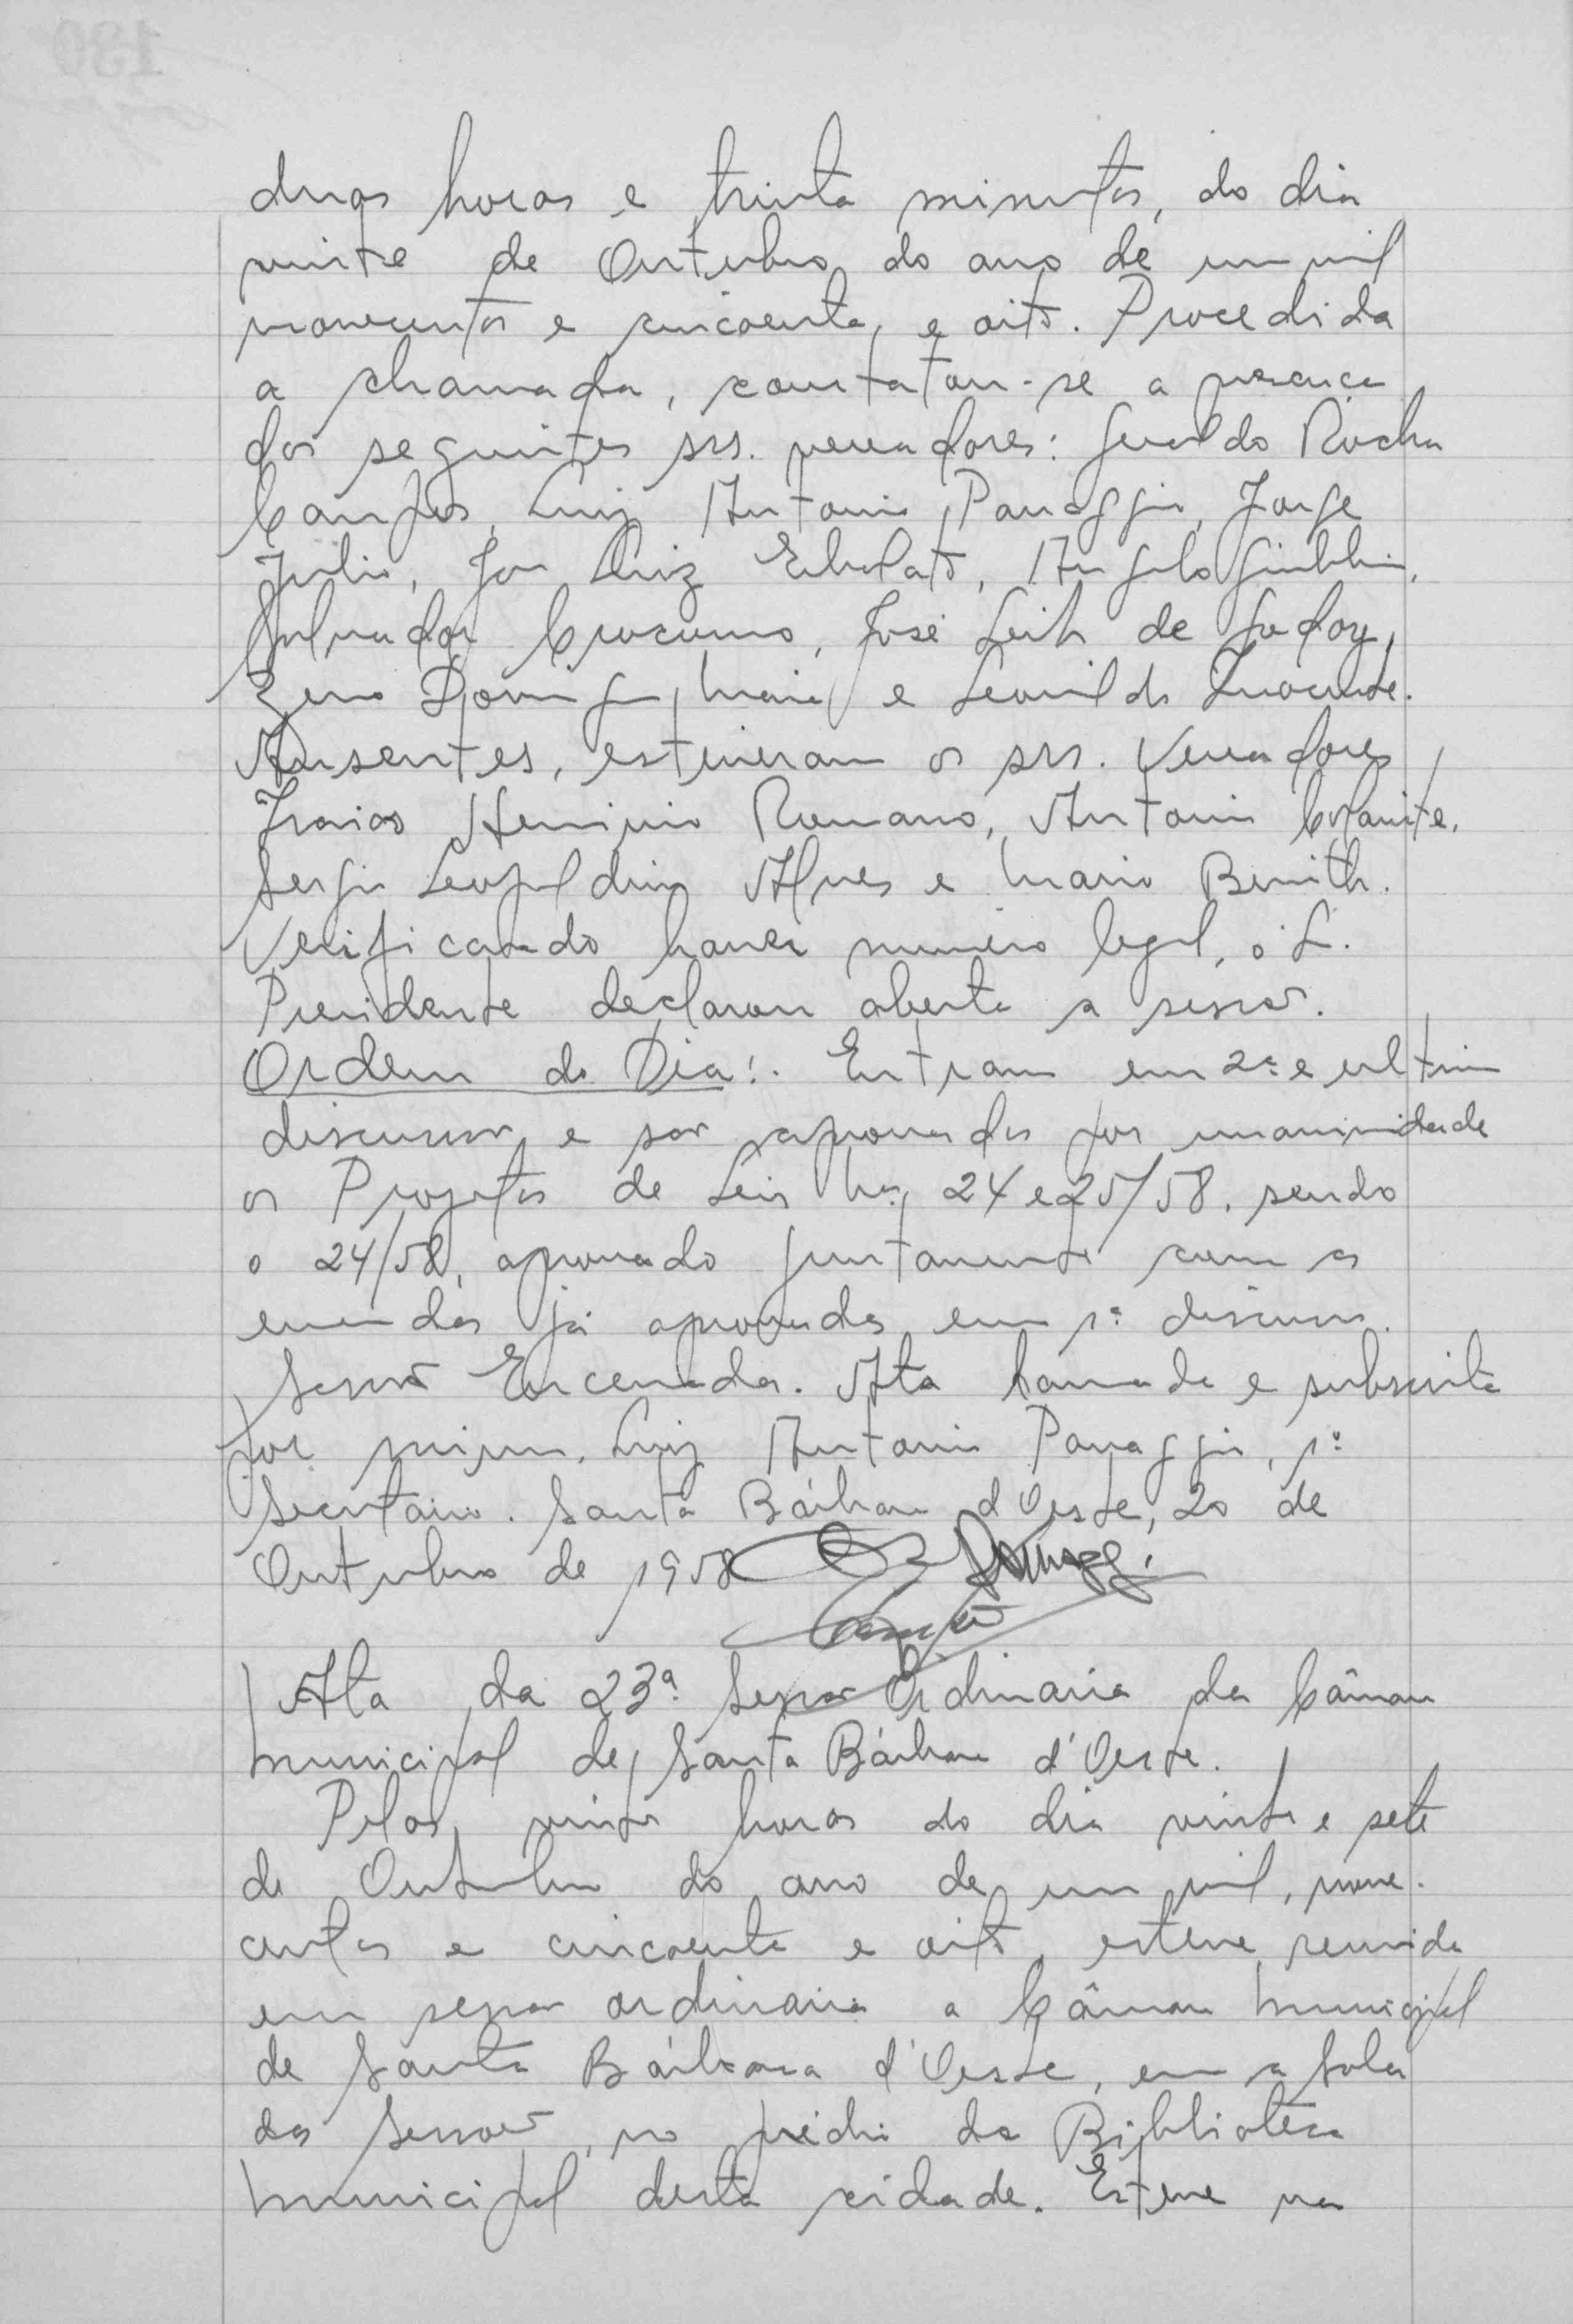 duas horas e trinta minutos, do dia
vinte de Outubro do ano de um mil
novecentos e cincoenta e oito. Procedida
a chamada, constatou-se a presença
dos seguintes srs. vereadores: Geraldo Rocha
Campos, Luiz Antonio Panaggio, Jorge
Julio, José Luiz, Angelo Giubbina,
Salvador Crocomo, José Leite de Godoy,
Zeno Domingos Maia e Leonildo Inocente.
Ausentes, estiveram os srs. Vereadores
Izaias Herminio Romano, Antonio
Sergio Leopoldino Alves e Mario Benith.
Verificando haver numero legal, o S.
Presidente declarou aberta a sessão.
Ordem do Dia:. Entram em 2ª e ultima
discussão e são aprovados por unanimidade
os Projetos de Leis Ns. 24 e 25/58, sendo
o 24/58, aprovado juntamente com as
emendas já aprovadas em 1ª discussão.
Sessão Encerrada. Ata lavrada e subscrita
por mim, Luiz Antonio Panaggio, 1º
Secretario. Santa Bárbara d'Oeste, 20 de
Outubro de 1958
Ata da 23ª Sessão Ordinaria da Câmara
Municipal de Santa Bárbara d'Oeste.
Pelas vinte horas do dia vinte e sete
de Outubro do ano de um mil, nove-
centos e cincoenta e oito, esteve reunida
em sessão ordinaria a Câmara Municipal
de Santa Bárbara d'Oeste, em a sala
das Sessões, no prédio da Biblioteca
Municipal desta cidade. Esteve na